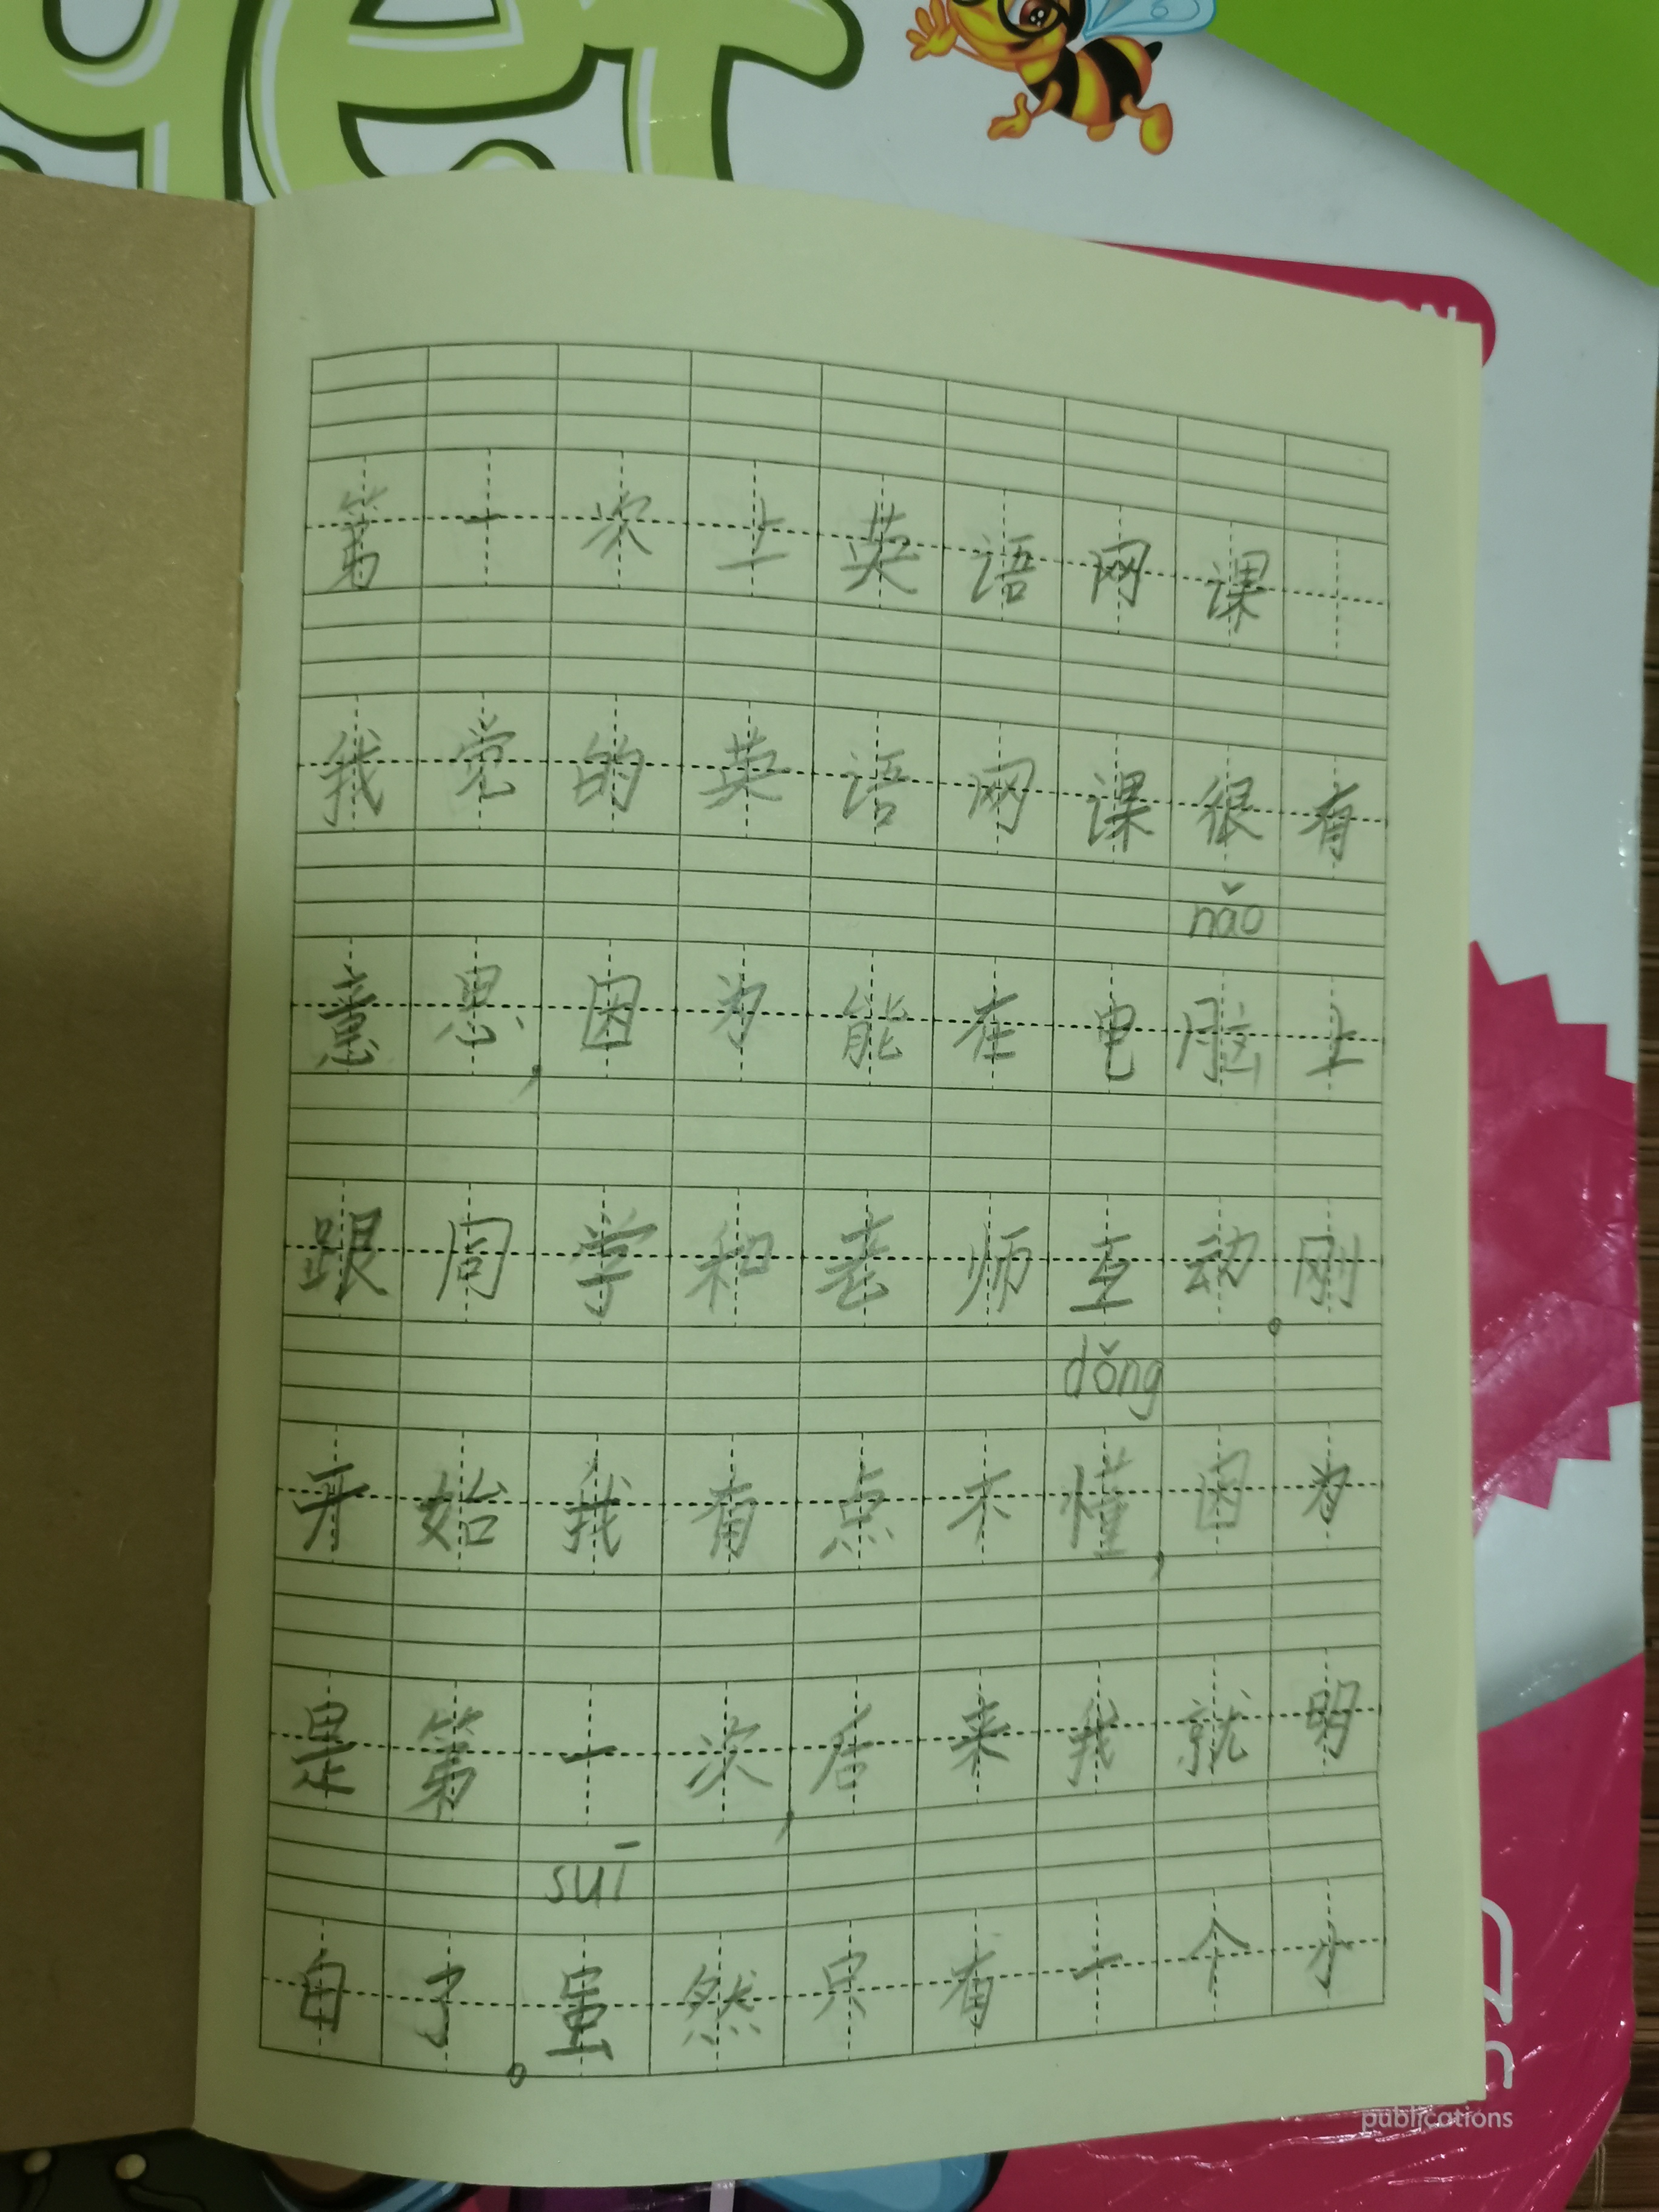 第一次上英语网课
我觉的英语网课很有
nǎo
意思,因为能在电脑上
跟同学和老师互动。刚
dǒng
开始我有点不懂,因为
是第一次,后来我就明
suī
白了。虽然只有一个小
publications